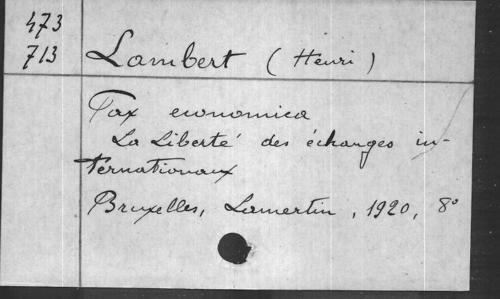 473
713
Lambert (Henri)
Pax economica
La Liberté des échanges in-
ternationaux
Bruxelles, Lamertin, 1920, 8°